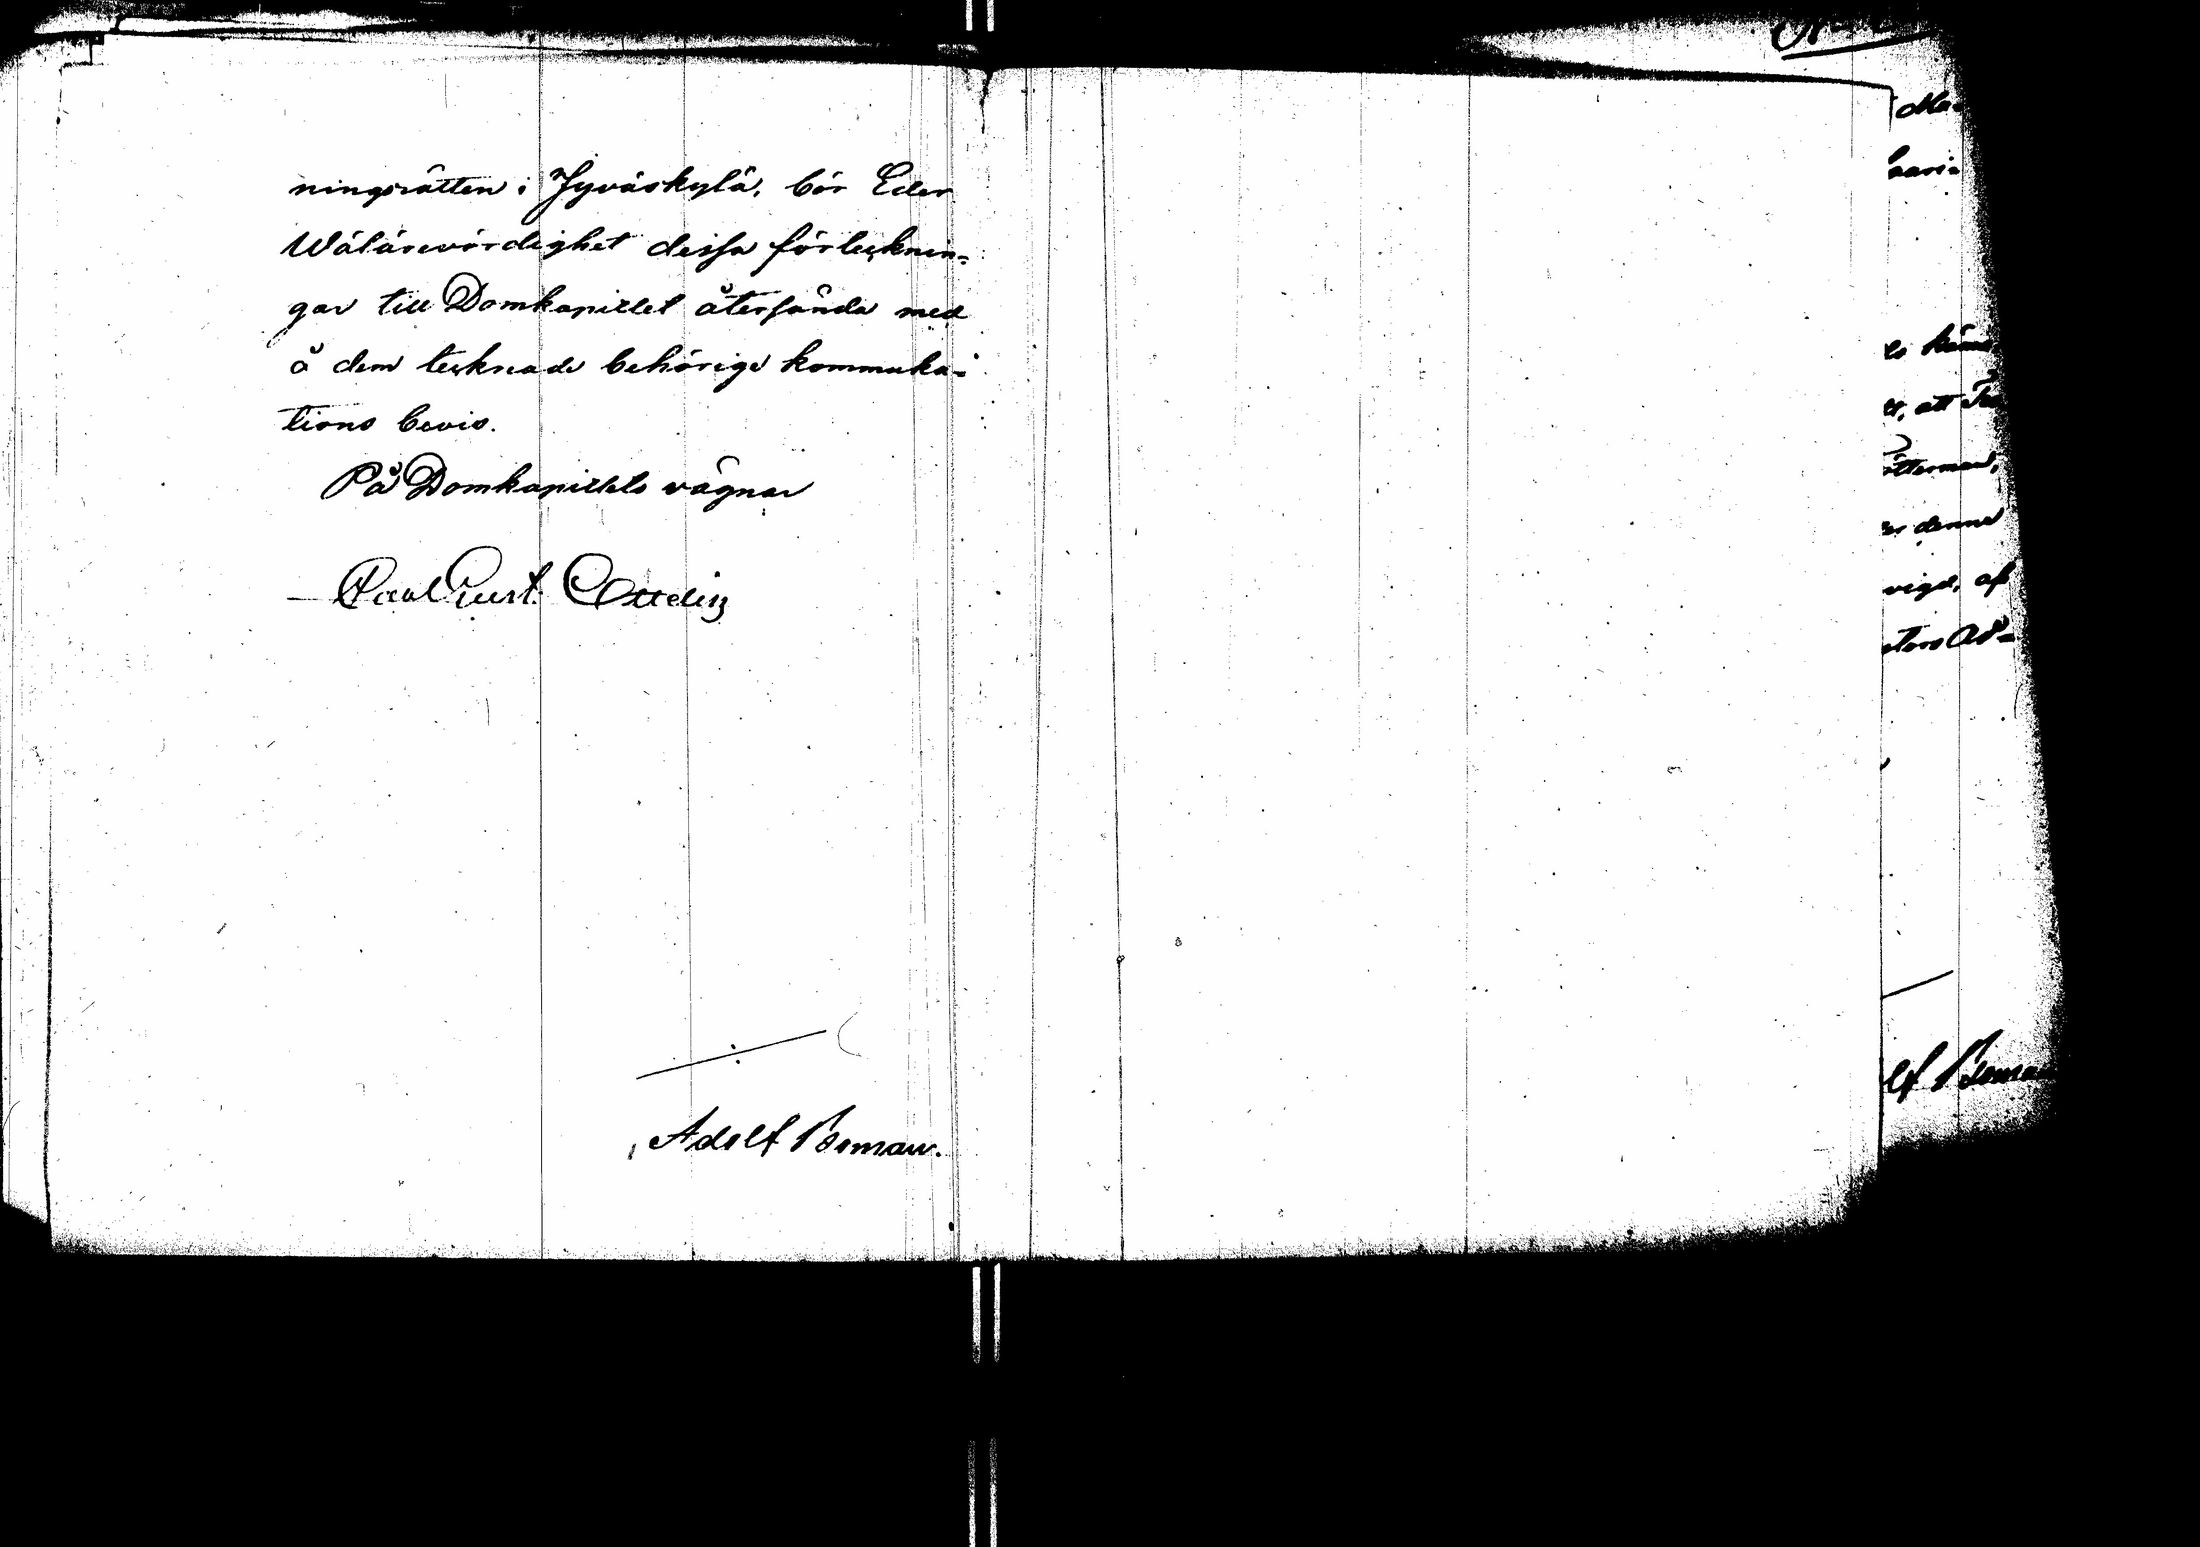 ningsrätten i Jyväskylä, bör Eder
Wälärevördighet dessa förtecknin-
gar till Domkapitlet återsända med
å dem tecknade behörige kommuka-
tions bevis.
På Domkapitlets vägnar
Paul Gust. Ottelin
Adolf Boman.
Ma-
Saari-
att
denne
vigd, af
lf Boman